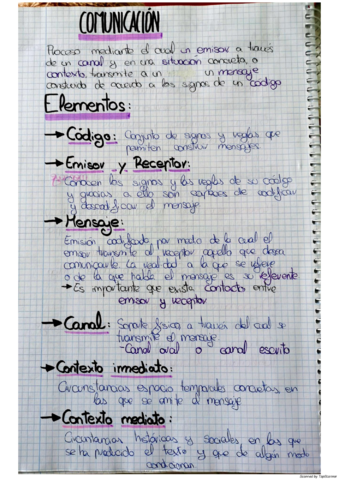 COMUNICACIÓN
Proceso mediante el cual un emisor a través
de un canal y en una situación concreta, o
contexto, transmite a un un mensaje
construido de acuerdo a los signos de un código
Elementos:
→ Código: Conjunto de signos y reglas que
permiten construir mensajes.
→ Emisor y Receptor:
Conocen los signos y las reglas de su código
y gracias a ello son capaces de codificar
y decodificar el mensaje
→ Mensaje:
Emisión codificada por medio de la cual el
emisor transmite al receptor aquello que desea
comunicarle. La realidad a la que se refiere
o de la que habla el mensaje es su referente
↳ Es importante que exista contacto entre
emisor y receptor
→ Canal: Soporte físico a través del cual se
transmite el mensaje
- Canal oral o canal escrito
→ Contexto inmediato:
Circunstancias espacio temporales concretas en
las que se emite el mensaje
→ Contexto mediato:
Circunstancias históricas y sociales, en las que
se ha producido el texto y que de algún modo
condicionan
Scanned by TapScanner